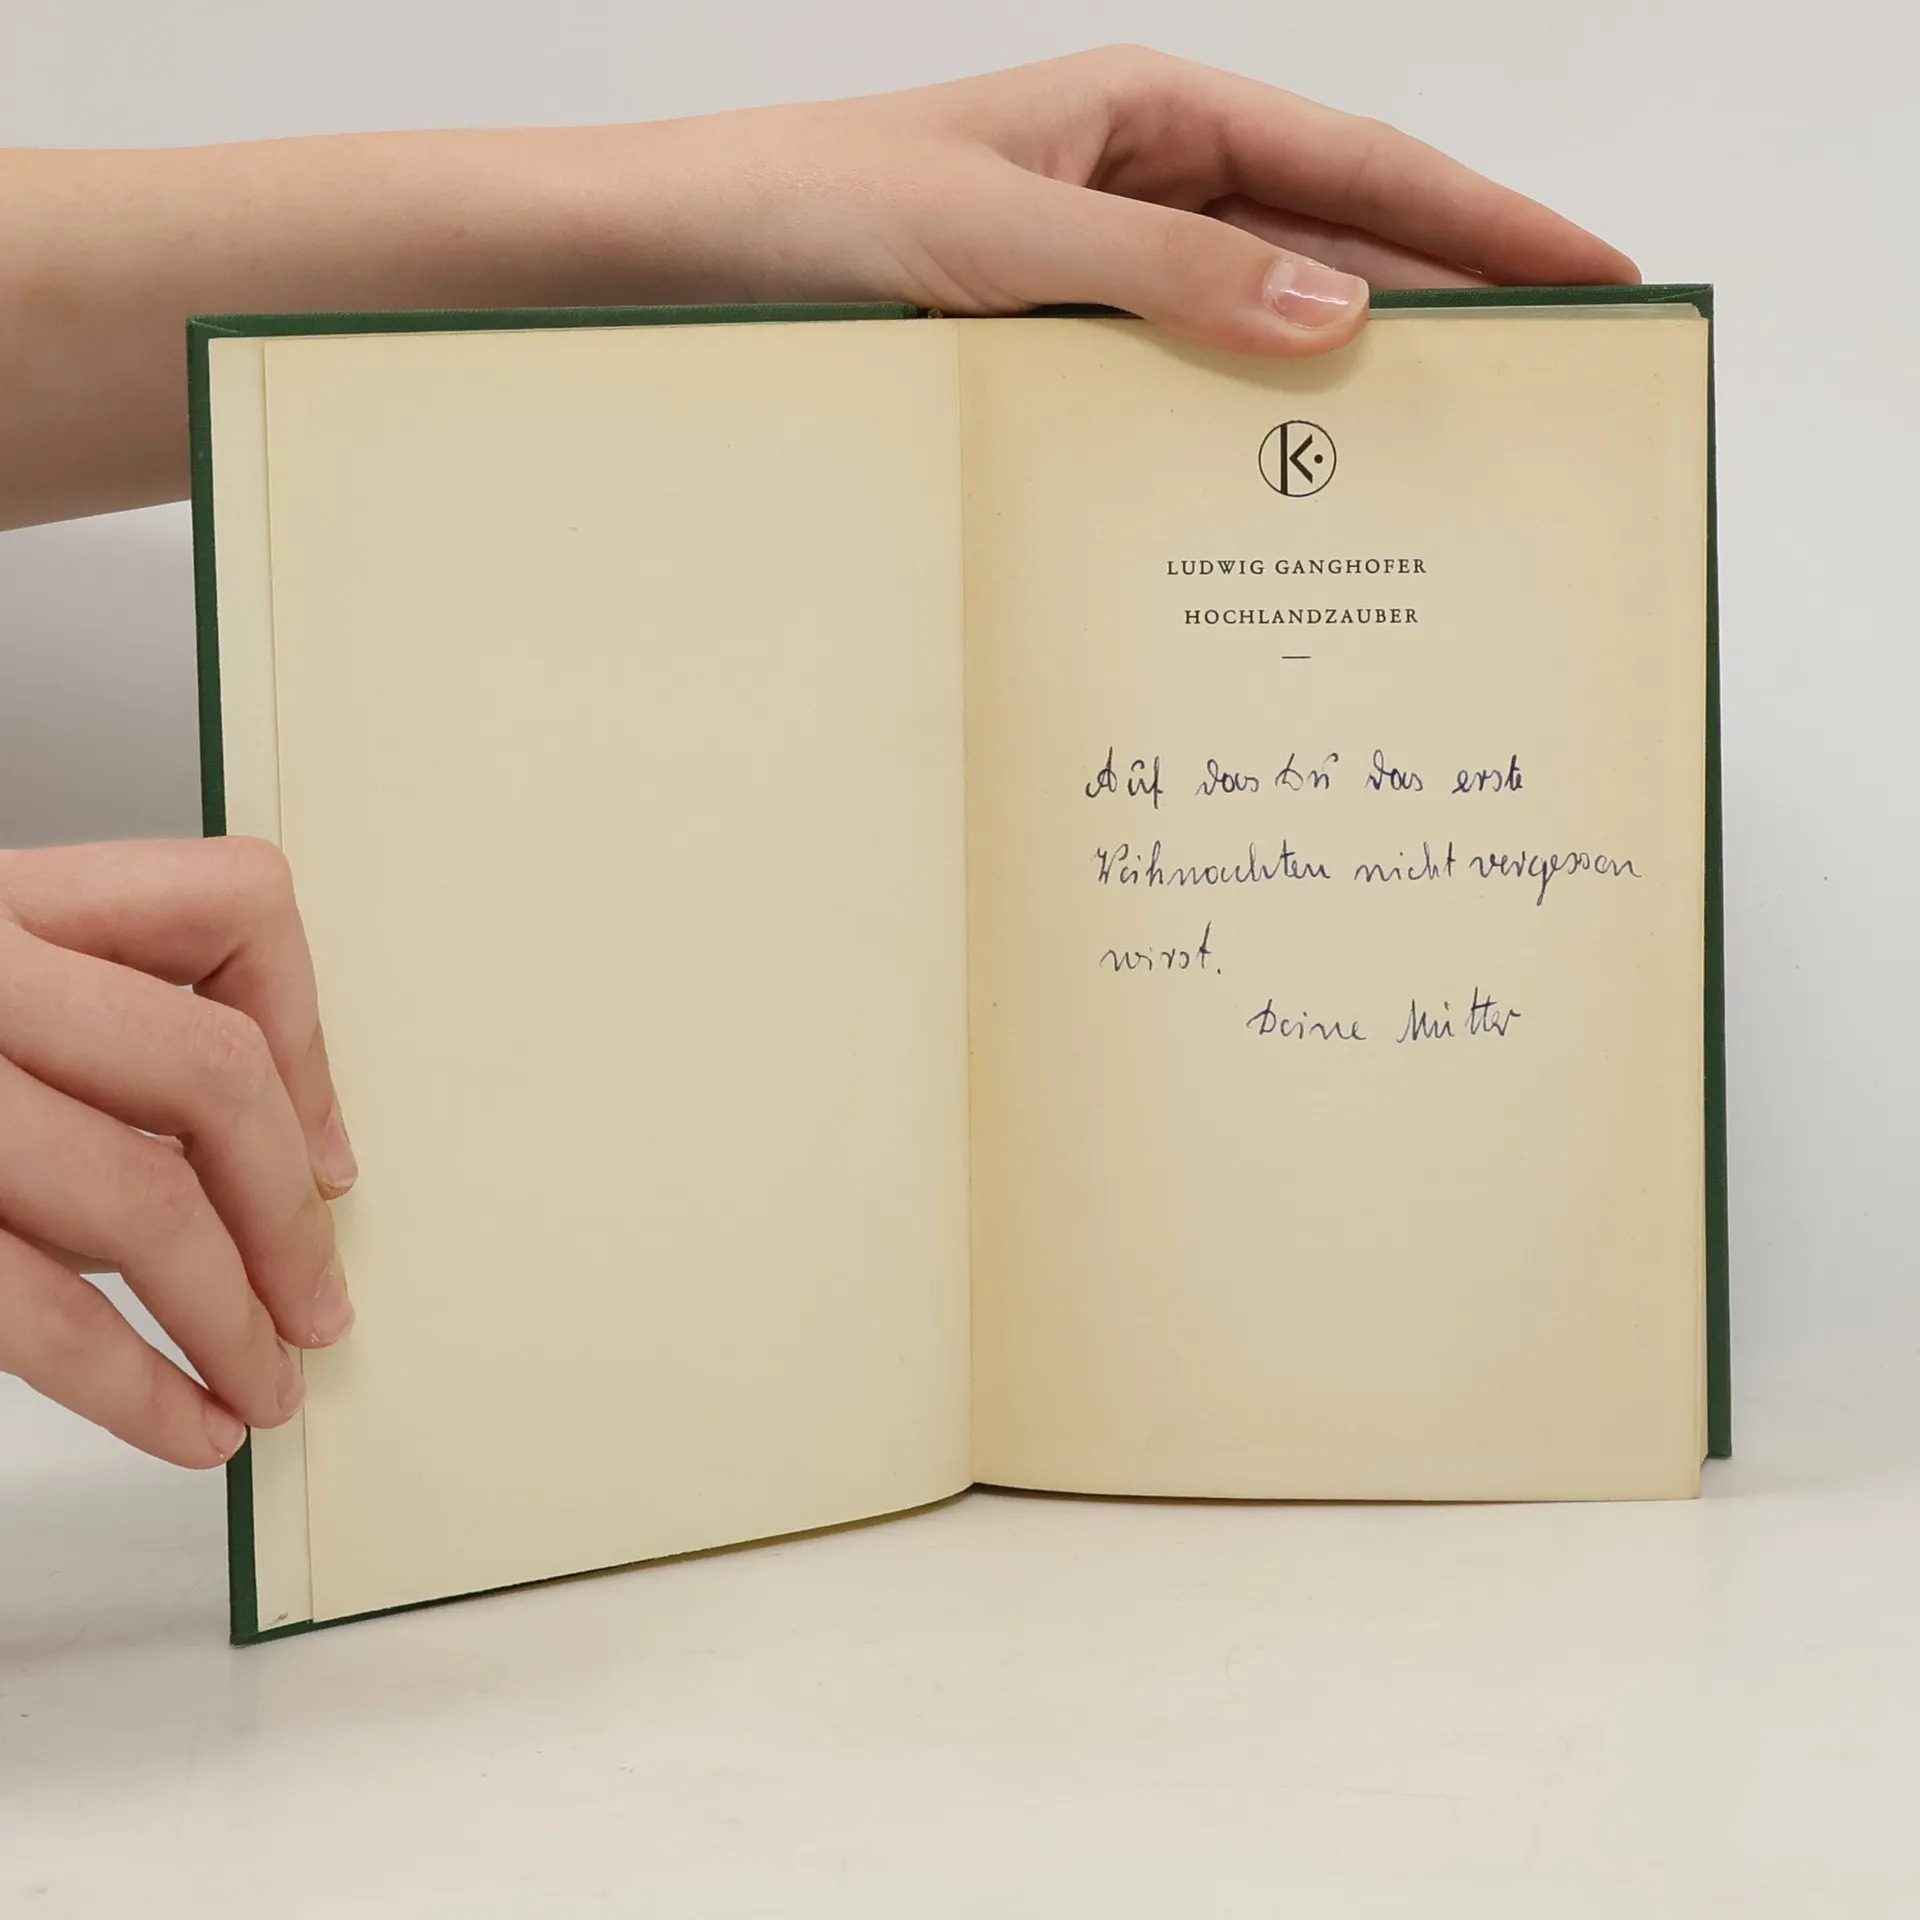 K.
LUDWIG GANGHOFER
HOCHLANDZAUBER
Auf das Du das erste
Weihnachten nicht vergessen
wirst.
Deine Mutter